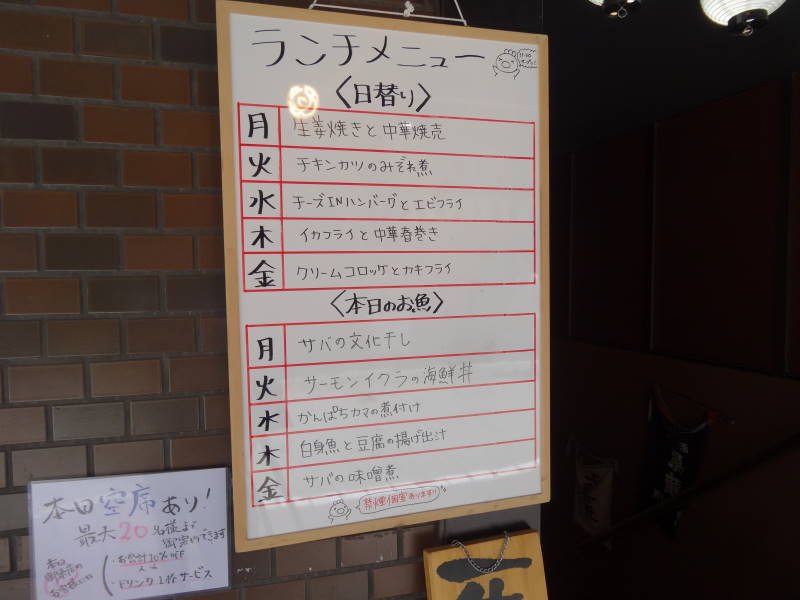 ランチメニュー
〈日替り〉
月 生姜焼きと中華焼売
火 チキンカツのみぞれ煮
水 チーズINハンバーグとエビフライ
木 イカフライと中華春巻き
金 クリームコロッケとカキフライ
〈本日のお魚〉
月 サバの文化干し
火 サーモンイクラの海鮮丼
水 かんぱちカマの煮付け
木 白身魚と豆腐の揚げ出汁
金 サバの味噌煮
禁煙個室あります!!
本日空席あり!
最大20名様まで
御案内できます
本日
御来店の
お客様には
・お会計10%OFF
・ドリンク1杯サービス